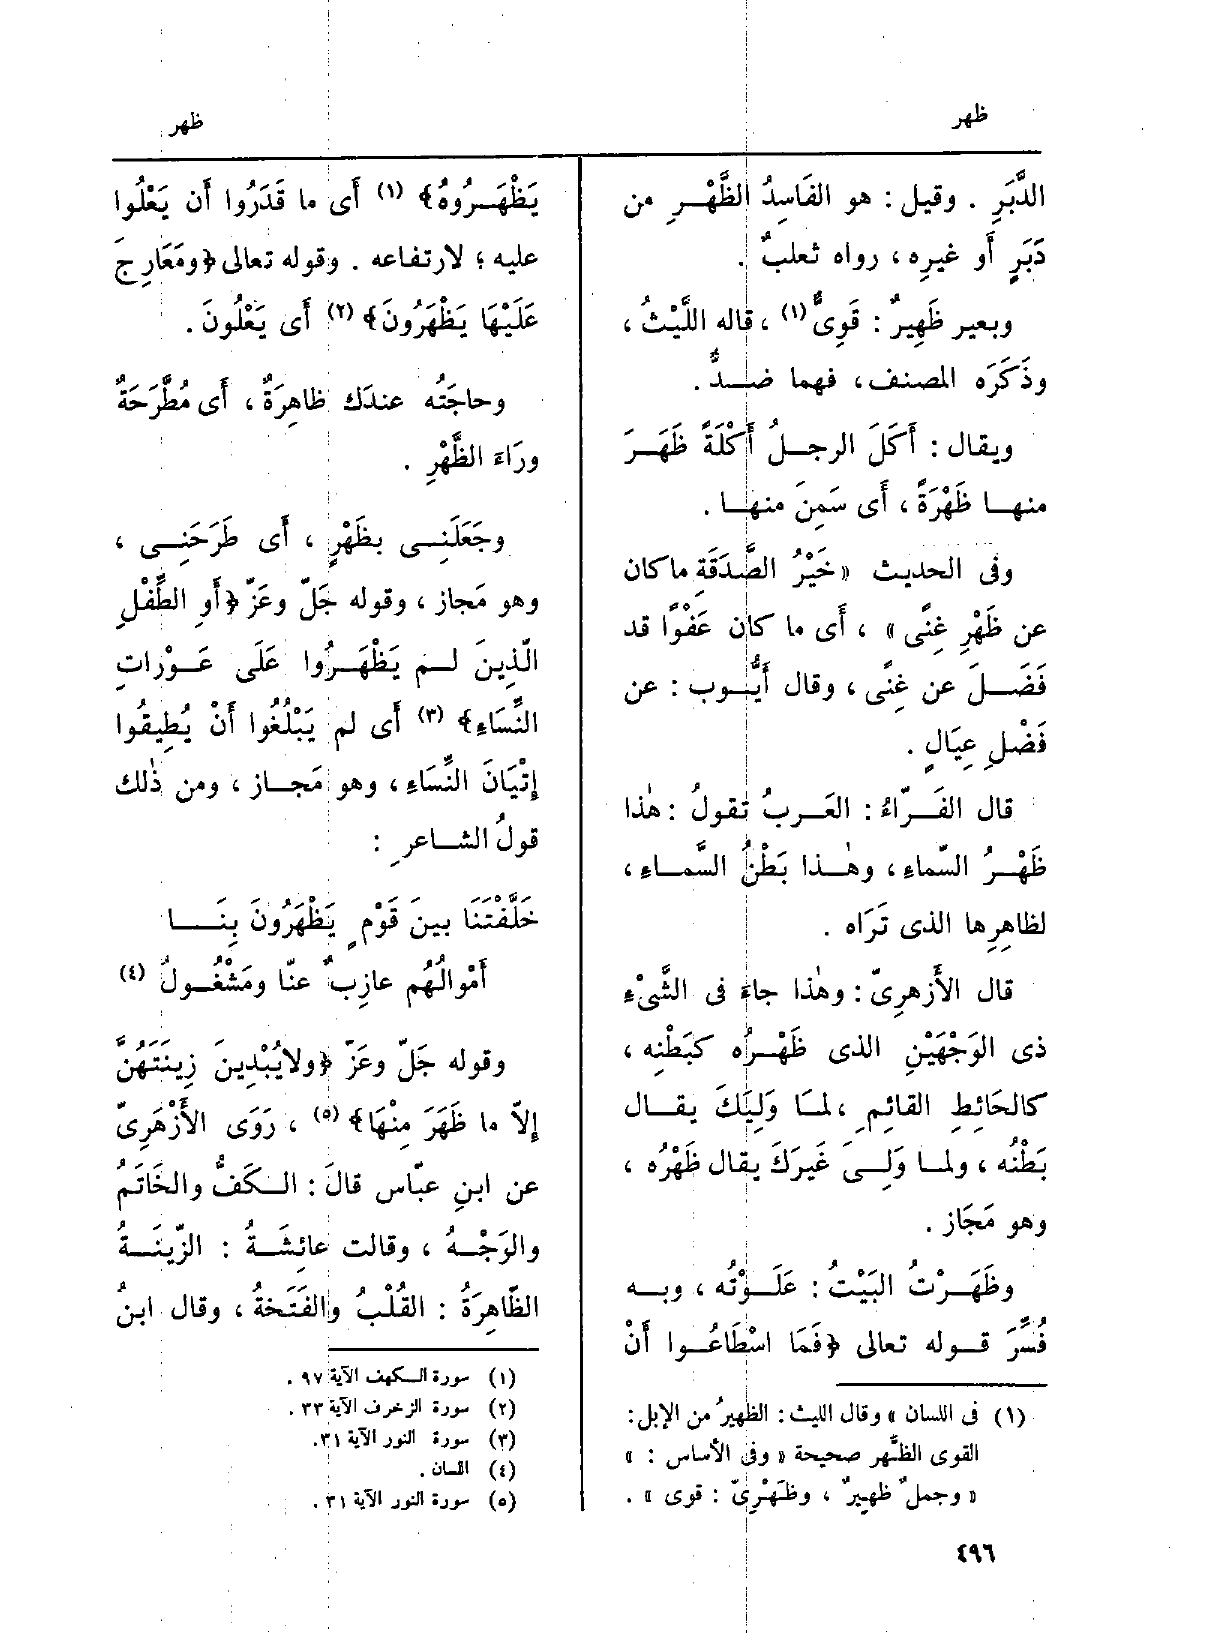 ظهر
ظهر
الدَّبَرِ . وقيل : هو الفَاسِدُ الظَّهْـرِ من
دَبَرٍ أو غيرِه ، رواه ثعلبٌ .
وبعير ظَهِيرٌ : قَوِىٌّ (١) ، قاله اللَّيْثُ ،
وذَكَرَه المصنف ، فهما ضـدٌّ .
ويقال : أَكَلَ الرجـلُ أَكْلَةً ظَهَـرَ
منهـا ظَهْرَةً ، أَى سَمِنَ منهـا .
وفى الحديث « خَيْرُ الصَّدَقَةِ ما كان
عن ظَهْرِ غِنًى » ، أَى ما كان عَفْوًا قد
فَضَـلَ عن غِنًى ، وقال أَيُّـوب : عن
فَضْلِ عِيَالٍ .
قال الفَـرّاءُ : العَـربُ تقولُ : هٰذا
ظَهْـرُ السّماءِ ، وهٰـذا بَطْنُ السَّمـاءِ ،
لظاهِرِها الذى تَرَاه .
قال الأَزهرِىّ : وهٰذا جاءَ فى الشَّىْءِ
ذى الوَجْهَيْنِ الذى ظَهْـرُه كبَطْنِه ،
كالحَائِطِ القائِمِ ، لمَـا وَلِيَكَ يقـال
بَطْنُه ، ولمـا وَلِـىَ غَيرَكَ يقال ظَهْرُه ،
وهو مَجَاز .
وظَهَـرْتُ البَيْتُ : عَلَـوْتُه ، وبـه
فُسِّرَ قـوله تعالى ﴿فَمَا اسْطَاعُـوا أَنْ
(١) فى اللسان « وقال الليث : الظهيرُ من الإبل :
القوى الظَّهر صحيحة « وفى الأساس : »
« وجملٌ ظهيرٌ ، وظَهْرِىّ : قوى » .
يَظْهَـرُوهُ﴾ (١) أَى ما قَدَرُوا أَن يَعْلُوا
عليه ؛ لارتفاعه . وقوله تعالى ﴿ومَعَارِجَ
عَلَيْهَا يَظْهَرُونَ﴾ (٢) أَى يَعْلُونَ .
وحاجَتُه عندَك ظاهِرَةٌ ، أَى مُطَّرَحَةٌ
ورَاءَ الظَّهْرِ .
وجَعَلَنِـى بظَهْرٍ ، أَى طَرَحَنِـى ،
وهو مَجاز ، وقوله جَلّ وعَزّ ﴿أَوِ الطِّفْلِ
الّذِينَ لـم يَظْهَـرُوا عَلَى عَـوْراتِ
النِّسَاءِ﴾ (٣) أَى لم يَبْلُغُوا أَنْ يُطِيقُوا
إِتْيَانَ النِّسَاءِ ، وهو مَجـاز ، ومن ذٰلك
قولُ الشـاعرِ :
خَلَّفْتَنَا بينَ قَوْمٍ يَظْهَرُونَ بِنَـــا
أَمْوالُهُم عازِبٌ عنّا ومَشْغُـولُ (٤)
وقوله جَلّ وعَزّ ﴿ولايُبْدِينَ زِينَتَهُنَّ
إِلاّ ما ظَهَرَ مِنْهَا﴾ (٥) ، رَوَى الأَزْهَرِىّ
عن ابنِ عبّاس قالَ : الـكَفُّ والخَاتَمُ
والوَجْـهُ ، وقالت عائِشَـةُ : الزِّينَـةُ
الظّاهِرَةُ : القُلْبُ والفَتَخةُ ، وقال ابنُ
(١) سورة الـكهف الآية ٩٧ .
(٢) سورة الزخرف الآية ٣٣ .
(٣) سورة النور الآية ٣١.
(٤) اللسان .
(٥) سورة النور الآية ٣١ .
٤٩٦